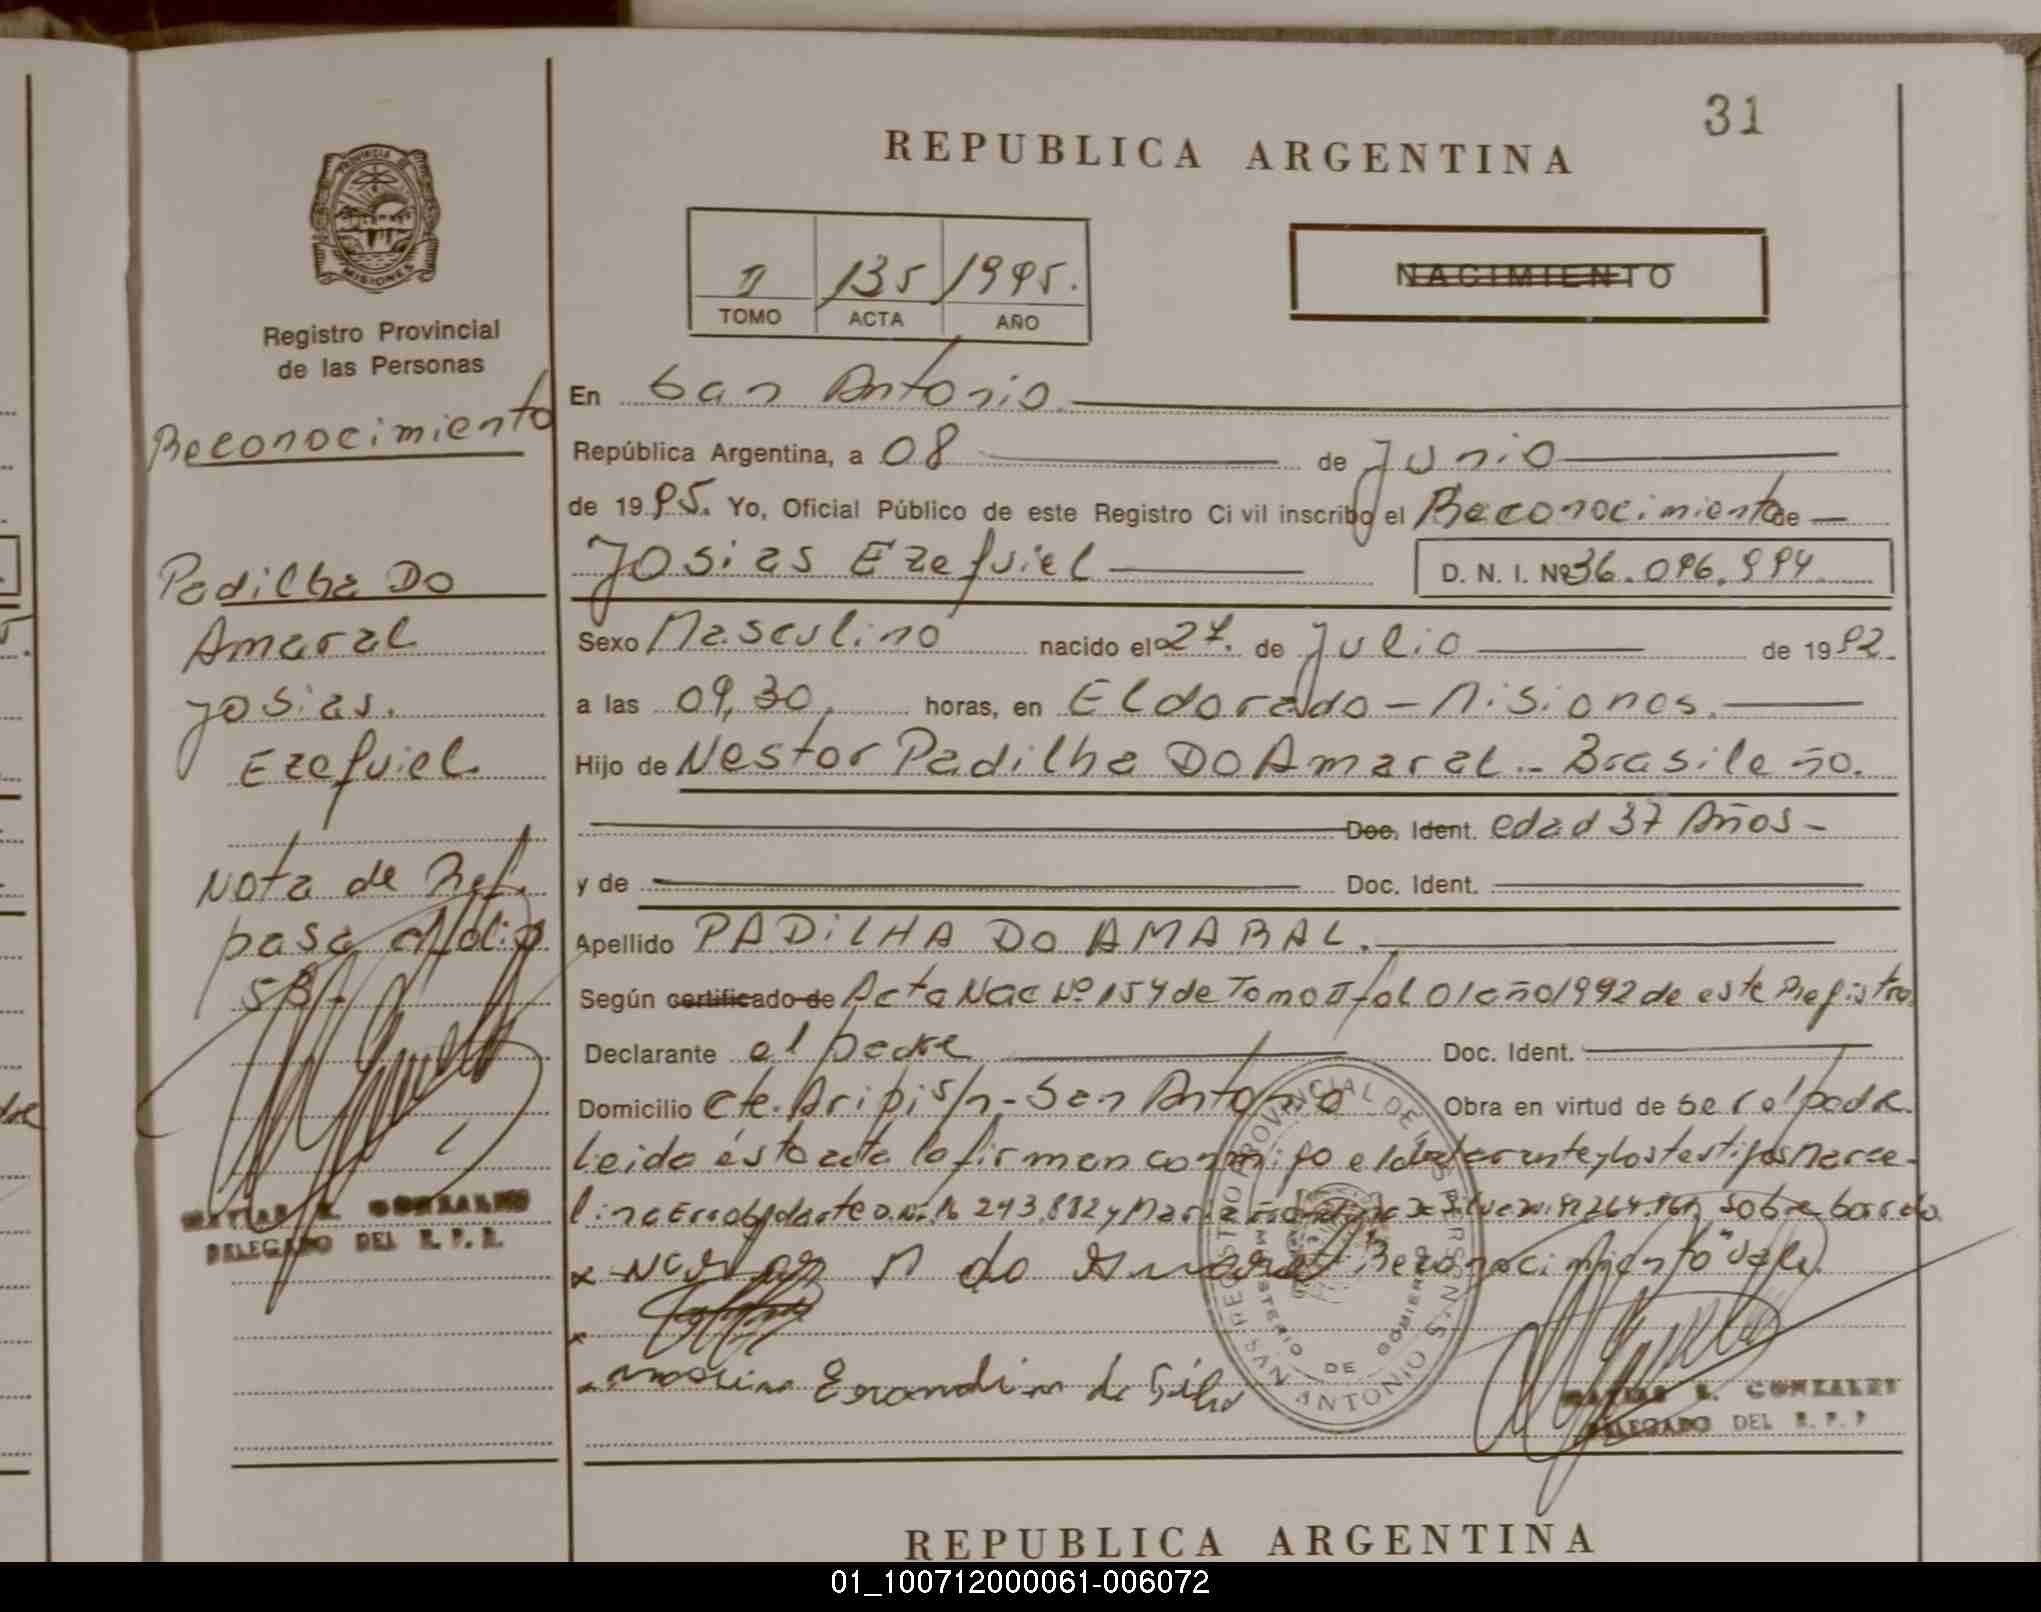 31
REPUBLICA ARGENTINA
PROVINCIA DE
MISIONES
Registro Provincial
de las Personas
II 135 1995.
TOMO ACTA AÑO
NACIMIENTO
Reconocimiento
Padilha Do
Amaral
Josias.
Ezequiel.
Nota de Ref.
pasa al folio
58.
DELEGADO DEL R. P. P.
En San Antonio.
República Argentina, a 08 de Junio
de 1995. Yo, Oficial Público de este Registro Civil inscribo el Reconocimiento de
Josias Ezequiel D. N. I. Nº 36.096.994
Sexo Masculino nacido el 27. de Julio de 1992.
a las 09,30 horas, en Eldorado - Misiones.
Hijo de Nestor Padilha Do Amaral - Brasileño.
Doc. Ident. edad 37 Años -
y de Doc. Ident.
Apellido PADILHA DO AMARAL.
Según certificado de Acta Nac Nº 154 de Tomo II fol 01 año 1992 de este Registro.
Declarante el padre Doc. Ident.
Domicilio Cte. Aripi s/n - San Antonio Obra en virtud de ser el padre.
Leida ésta acta la firman conmigo el declarante y los testigos Marce-
lina sobre borrado
Reconocimiento" vale.
REGISTRO PROVINCIAL DE LAS PERSONAS
MINISTERIO DE GOBIERNO
SAN ANTONIO
GONZALEZ
DELEGADO DEL R. P. P
REPUBLICA ARGENTINA
01_100712000061-006072